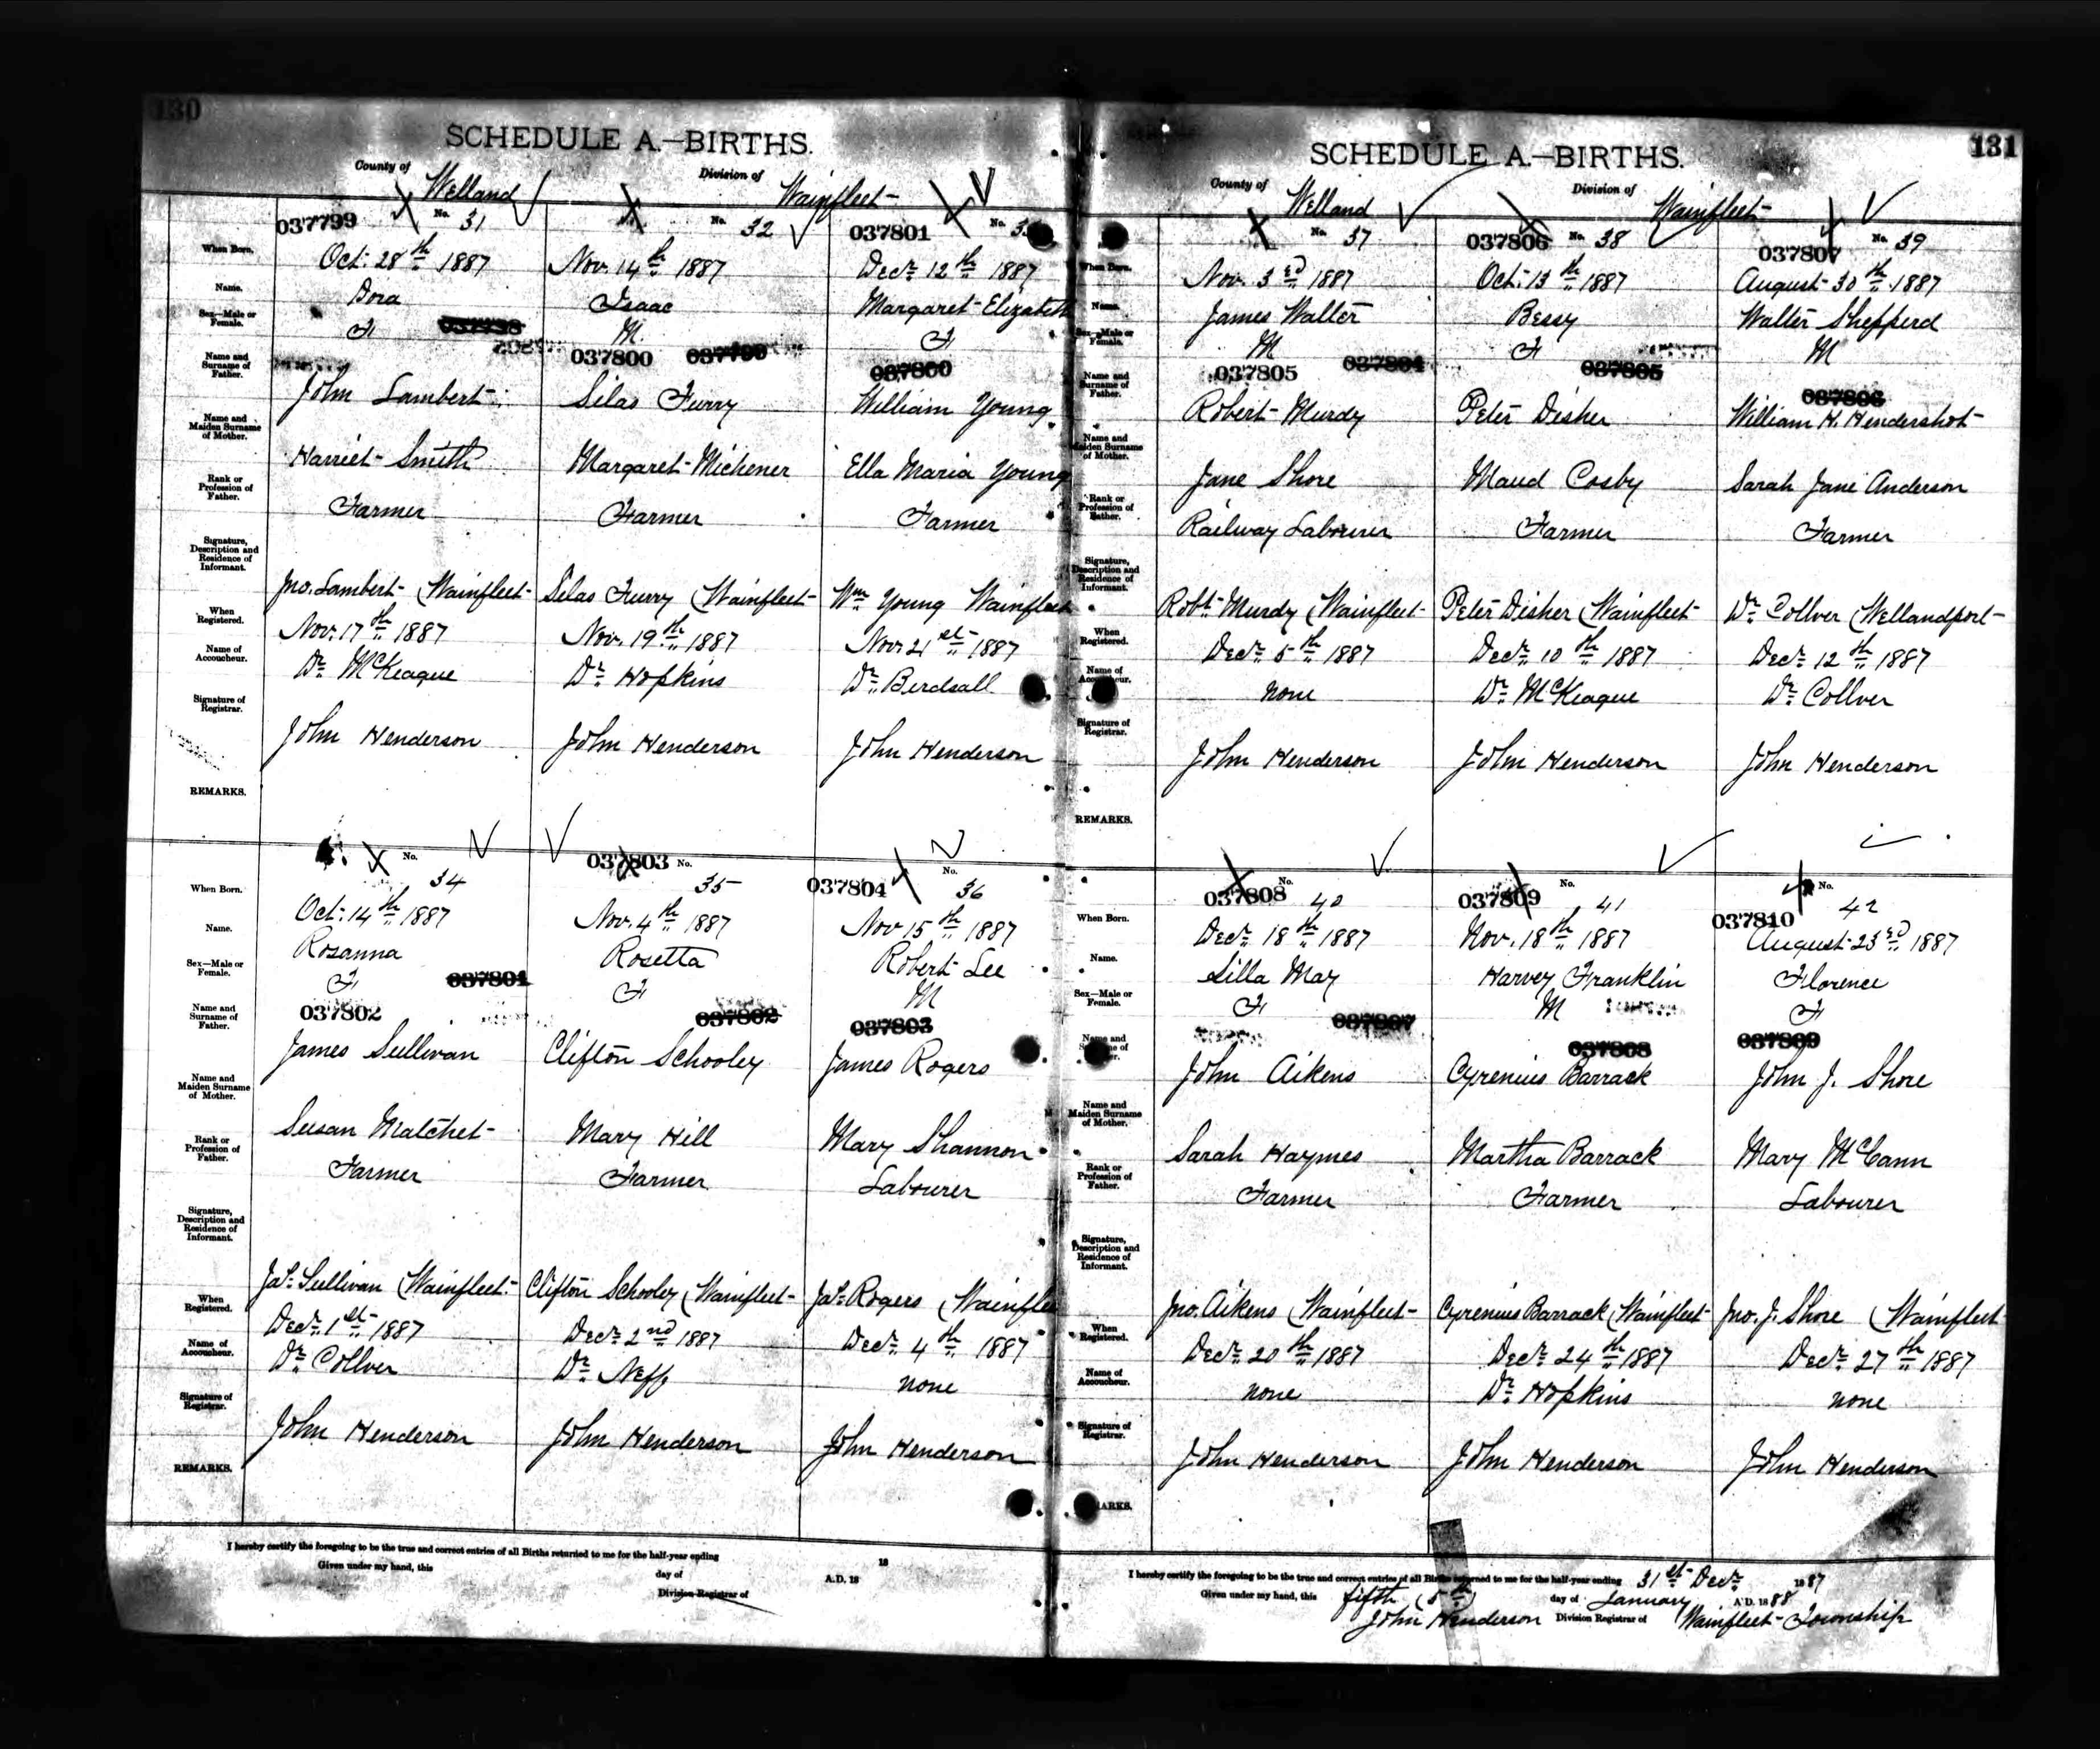 130
SCHEDULE A.—BIRTHS.
County of Welland Division of Wainfleet
037799 No. 31 No. 32 037801 No.
When Born. Oct. 28th 1887 Nov. 14th 1887 Decr. 12th 1887
Name. Dora Isaac Margaret Elizabeth
Sex—Male or Female. F M F
037800
Name and Surname of Father. John Lambert Silas Furry William Young
Name and Maiden Surname of Mother. Harriet Smith Margaret Michener Ella Maria Young
Rank or Profession of Father. Farmer Farmer Farmer
Signature, Description and Residence of Informant. Jno. Lambert (Wainfleet Silas Furry (Wainfleet Wm Young Wainfleet
When Registered. Nov. 17th 1887 Nov. 19th 1887 Nov. 21st 1887
Name of Accoucheur. Dr. McKeague Dr. Hopkins Dr. Birdsall
Signature of Registrar. John Henderson John Henderson John Henderson
REMARKS.
No. 34 037803 No. 35 037804 No. 36
When Born. Oct. 14th 1887 Nov. 4th 1887 Nov 15th 1887
Name. Rosanna Rosetta Robert Lee
Sex—Male or Female. F F M
037801 037802 037803
037802
Name and Surname of Father. James Sullivan Clifton Schooley James Rogers
Name and Maiden Surname of Mother. Susan Matchet Mary Hill Mary Shannon
Rank or Profession of Father. Farmer Farmer Labourer
Signature, Description and Residence of Informant. Jas. Sullivan (Wainfleet Clifton Schooley (Wainfleet Jas. Rogers (Wainflee
When Registered. Decr. 1st 1887 Decr. 2nd 1887 Decr. 4th 1887
Name of Accoucheur. Dr. Collver Dr. Neff none
Signature of Registrar. John Henderson John Henderson John Henderson
REMARKS.
I hereby certify the foregoing to be the true and correct entries of all Births returned to me for the half-year ending 18
Given under my hand, this day of A.D. 18
Division Registrar of
131
SCHEDULE A.—BIRTHS.
County of Welland Division of Wainfleet
No. 37 037806 No. 38 037807 No. 39
When Born. Nov. 3rd 1887 Oct. 13th 1887 August 30th 1887
Name. James Walter Bessy Walter Shepperd
Sex—Male or Female. M F M
037805 037804 037805 037806
Name and Surname of Father. Robert Murdy Peter Disher William H. Hendershot
Name and Maiden Surname of Mother. Jane Shore Maud Cosby Sarah Jane Anderson
Rank or Profession of Father. Railway Labourer Farmer Farmer
Signature, Description and Residence of Informant. Robt. Murdy (Wainfleet Peter Disher (Wainfleet Dr. Collver (Wellandport
When Registered. Decr. 5th 1887 Decr. 10th 1887 Decr. 12th 1887
Name of Accoucheur. none Dr. McKeague Dr. Collver
Signature of Registrar. John Henderson John Henderson John Henderson
REMARKS.
037808 No. 40 037809 No. 41 037810 No. 42
When Born. Decr. 18th 1887 Nov. 18th 1887 August 23rd 1887
Name. Lilla May Harvey Franklin Florence
Sex—Male or Female. F M F
037807 037808 037809
Name and Surname of Father. John Aikens Cyrenius Barrack John J. Shore
Name and Maiden Surname of Mother. Sarah Haymes Martha Barrack Mary McCann
Rank or Profession of Father. Farmer Farmer Labourer
Signature, Description and Residence of Informant. Jno. Aikens (Wainfleet Cyrenius Barrack (Wainfleet Jno. J. Shore (Wainfleet
When Registered. Decr. 20th 1887 Decr. 24th 1887 Decr. 27th 1887
Name of Accoucheur. none Dr. Hopkins none
Signature of Registrar. John Henderson John Henderson John Henderson
ARKS.
I hereby certify the foregoing to be the true and correct entries of all Births returned to me for the half-year ending 31st Decr. 1887
Given under my hand, this fifth (5th) day of January A.D. 1888
John Henderson Division Registrar of Wainfleet Township